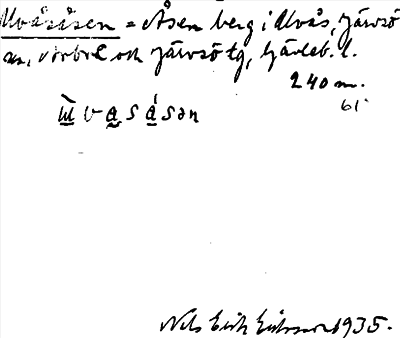 Ulvåsåsen = Åsen berg i Ulvås, Järvsö
sn, Arbrå och Järvsö tg, Gävleb. l.
240 m.
61
ùl v a s ǻ sən
Nils Erik Eriksson 1935.